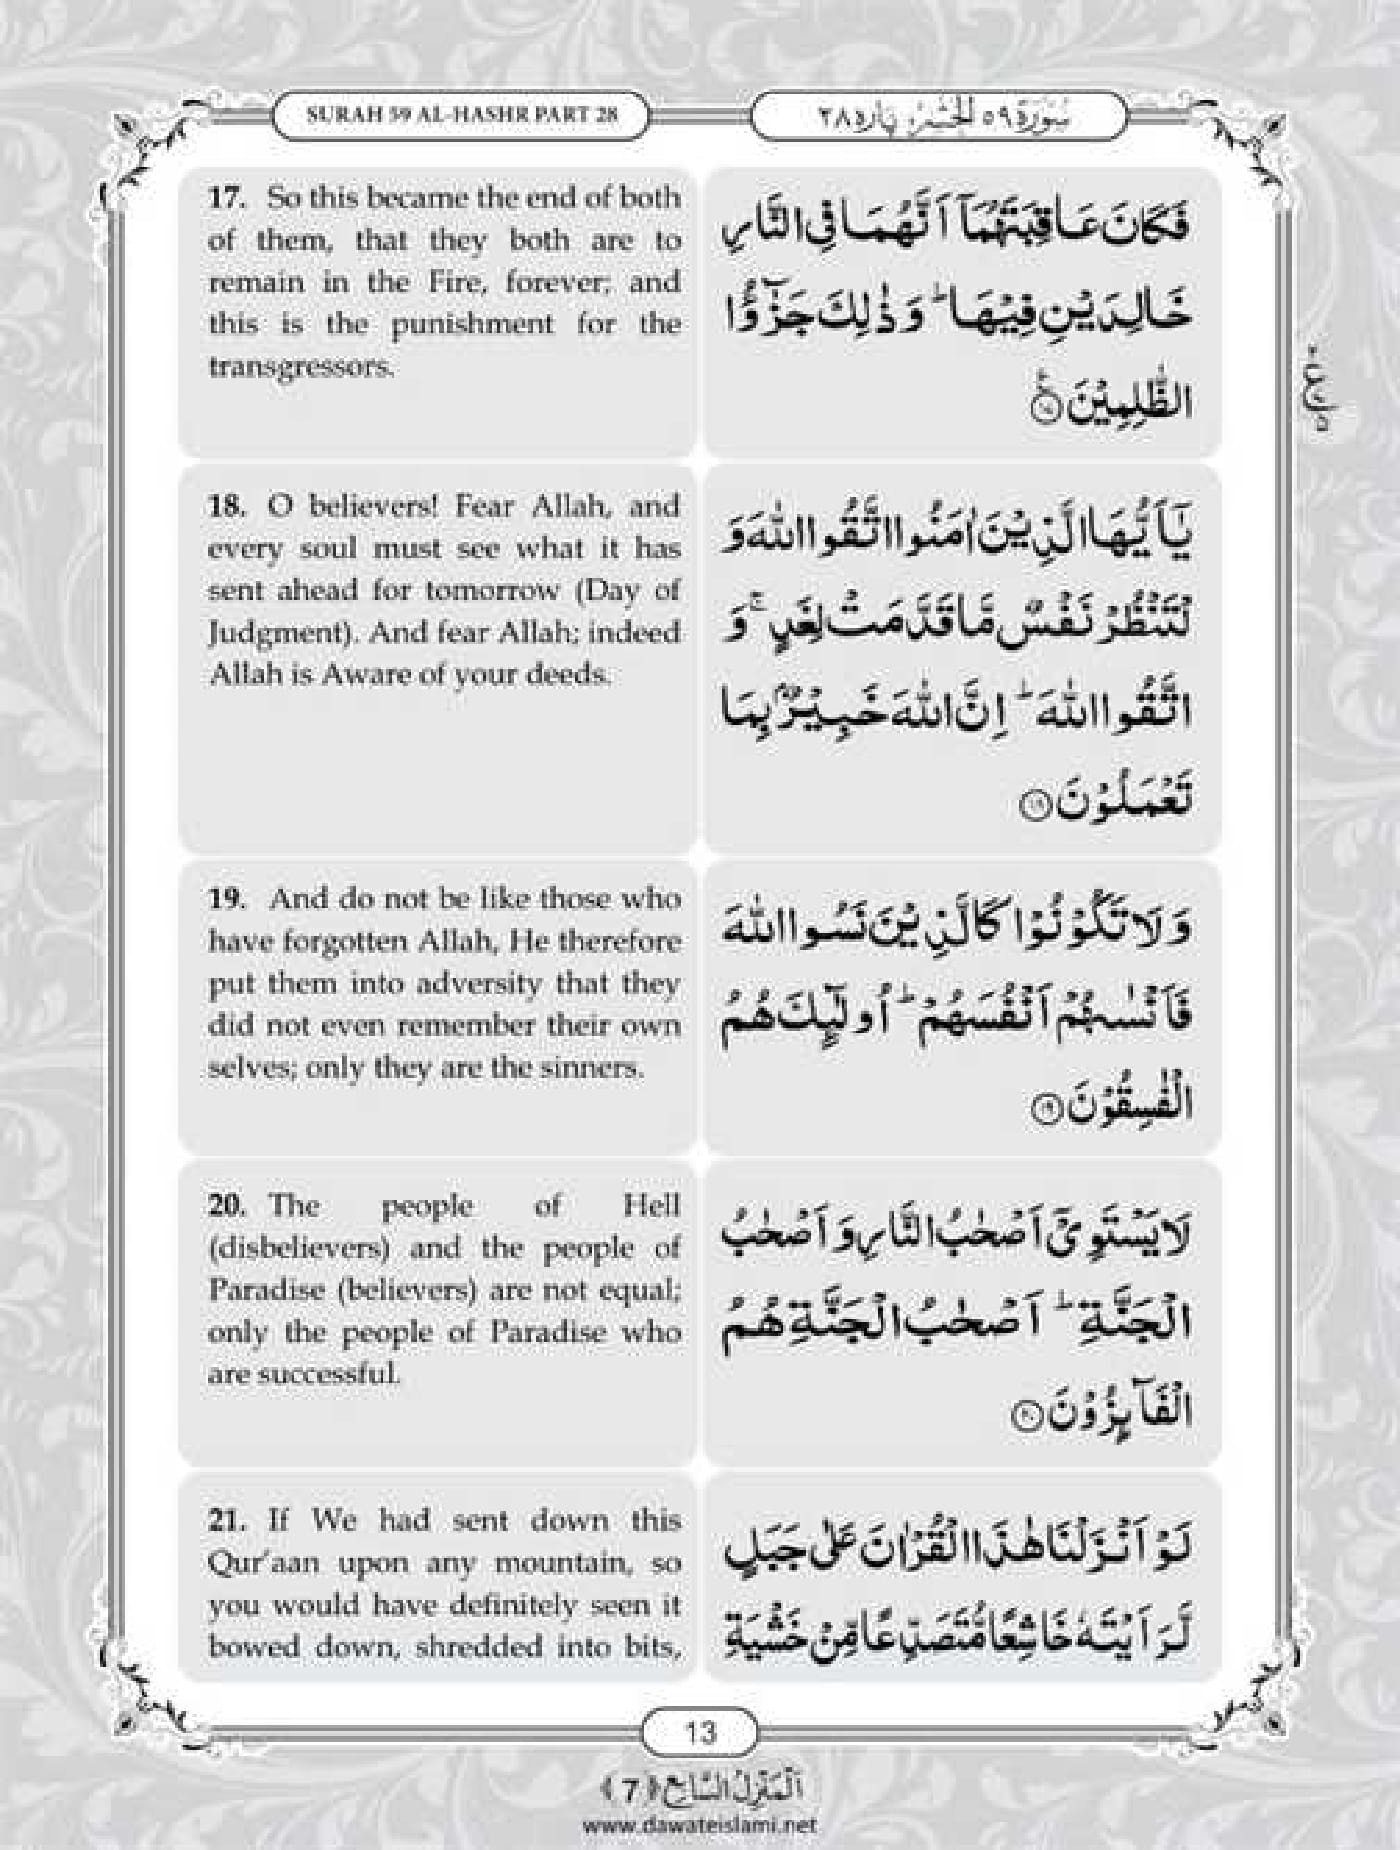 SURAH 59 AL-HASHR PART 28
سُوْرَة ٥٩ الْحَشْر پاره ٢٨
17. So this became the end of both
of them, that they both are to
remain in the Fire, forever; and
this is the punishment for the
transgressors.
فَكَانَ عَاقِبَتَهُمَاۤ اَنَّهُمَا فِى النَّارِ
خَالِدَيْنِ فِيْهَا ؕ وَ ذٰلِكَ جَزٰٓؤُا
الظّٰلِمِيْنَ ﴿۱۷﴾
18. O believers! Fear Allah, and
every soul must see what it has
sent ahead for tomorrow (Day of
Judgment). And fear Allah; indeed
Allah is Aware of your deeds.
يٰۤاَيُّهَا الَّذِيْنَ اٰمَنُوا اتَّقُوا اللّٰهَ وَ
لْتَنْظُرْ نَفْسٌ مَّا قَدَّمَتْ لِغَدٍ ۚ وَ
اتَّقُوا اللّٰهَ ؕ اِنَّ اللّٰهَ خَبِيْرٌۢ بِمَا
تَعْمَلُوْنَ ﴿۱۸﴾
19. And do not be like those who
have forgotten Allah, He therefore
put them into adversity that they
did not even remember their own
selves; only they are the sinners.
وَ لَا تَكُوْنُوْا كَالَّذِيْنَ نَسُوا اللّٰهَ
فَاَنْسٰىهُمْ اَنْفُسَهُمْ ؕ اُولٰٓئِكَ هُمُ
الْفٰسِقُوْنَ ﴿۱۹﴾
20. The people of Hell
(disbelievers) and the people of
Paradise (believers) are not equal;
only the people of Paradise who
are successful.
لَا يَسْتَوِىْۤ اَصْحٰبُ النَّارِ وَ اَصْحٰبُ
الْجَنَّةِ ؕ اَصْحٰبُ الْجَنَّةِ هُمُ
الْفَآئِزُوْنَ ﴿۲۰﴾
21. If We had sent down this
Qur'aan upon any mountain, so
you would have definitely seen it
bowed down, shredded into bits,
لَوْ اَنْزَلْنَا هٰذَا الْقُرْاٰنَ عَلٰى جَبَلٍ
لَّرَاَيْتَهٗ خَاشِعًا مُّتَصَدِّعًا مِّنْ خَشْيَةِ
13
اَلْمَنْزِلُ السَّابِع ﴿7﴾
www.dawateislami.net